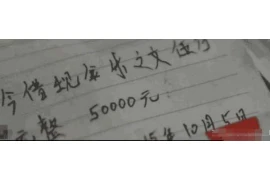 今借现家乐之文伍万
元整 50000元.
15年10月5日